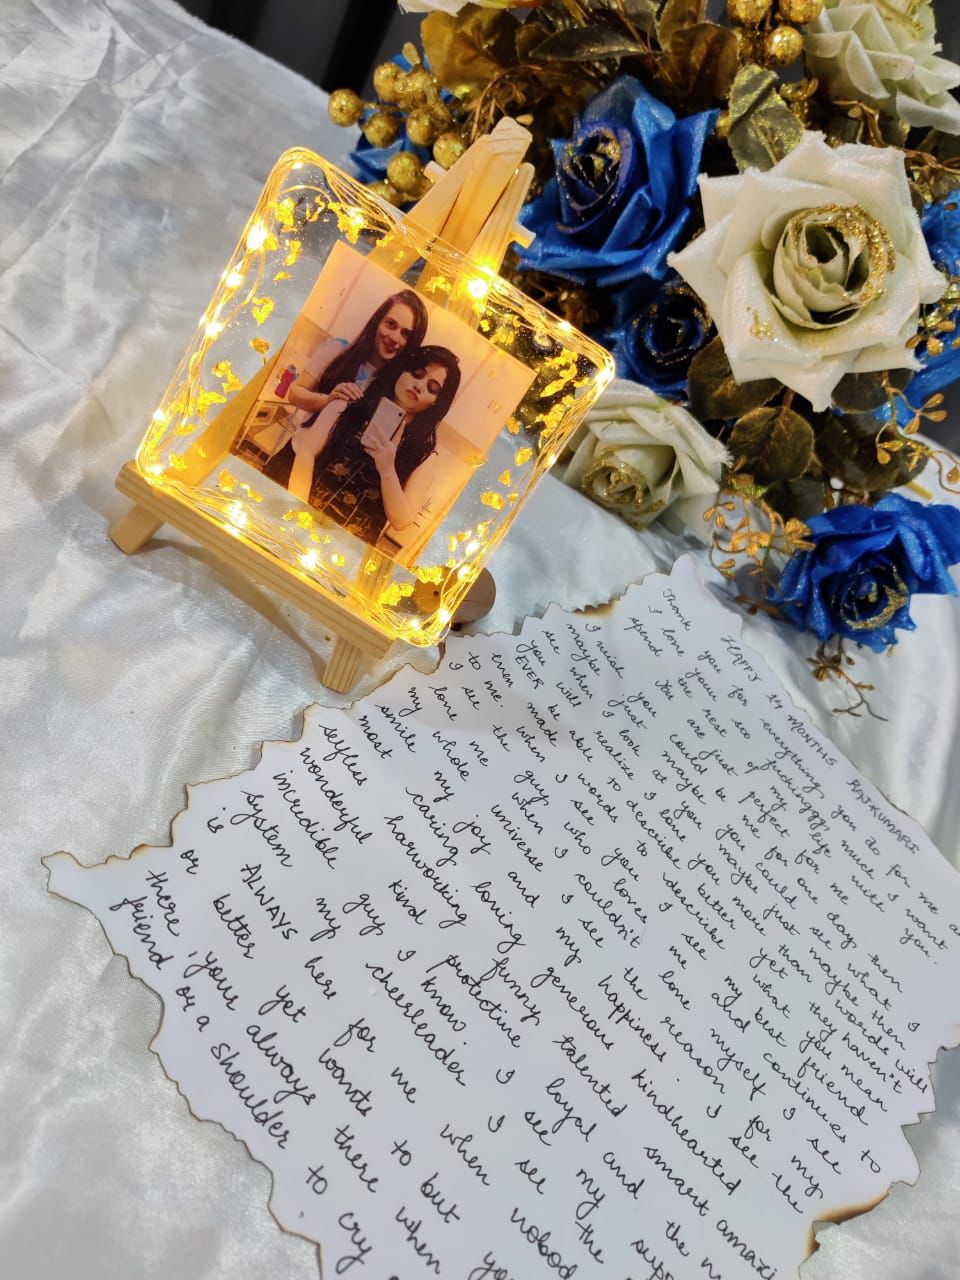 HAPPY 14 MONTHS RAJKUMARI
Thank you for everything you do for me a
I love youu soo fuckinggg much I want
spend the rest of my life with you.
You are just perfect for me
I wish you could be me for one day, then
maybe just maybe you could see what I
see when I look at you maybe just maybe then
you will realize I love you more than words will
EVER be able to describe better yet they haven't
even made words to describe what you mean
to me. when I see you I see my best friend
I see the guy who loves me and continues to
love me when I couldn't love myself I see
my whole universe I see the reason for my
smile my joy and my happiness. I see the
most caring loving generous kindhearted
selfless harworking funny talented smart amazi
wonderful kind protective loyal and the m
incredible guy I know. I see my supp
system my cheerleader I see the
is ALWAYS here for me when nobod
or better yet wants to but yo
there, your always there when
friend or a shoulder to cry